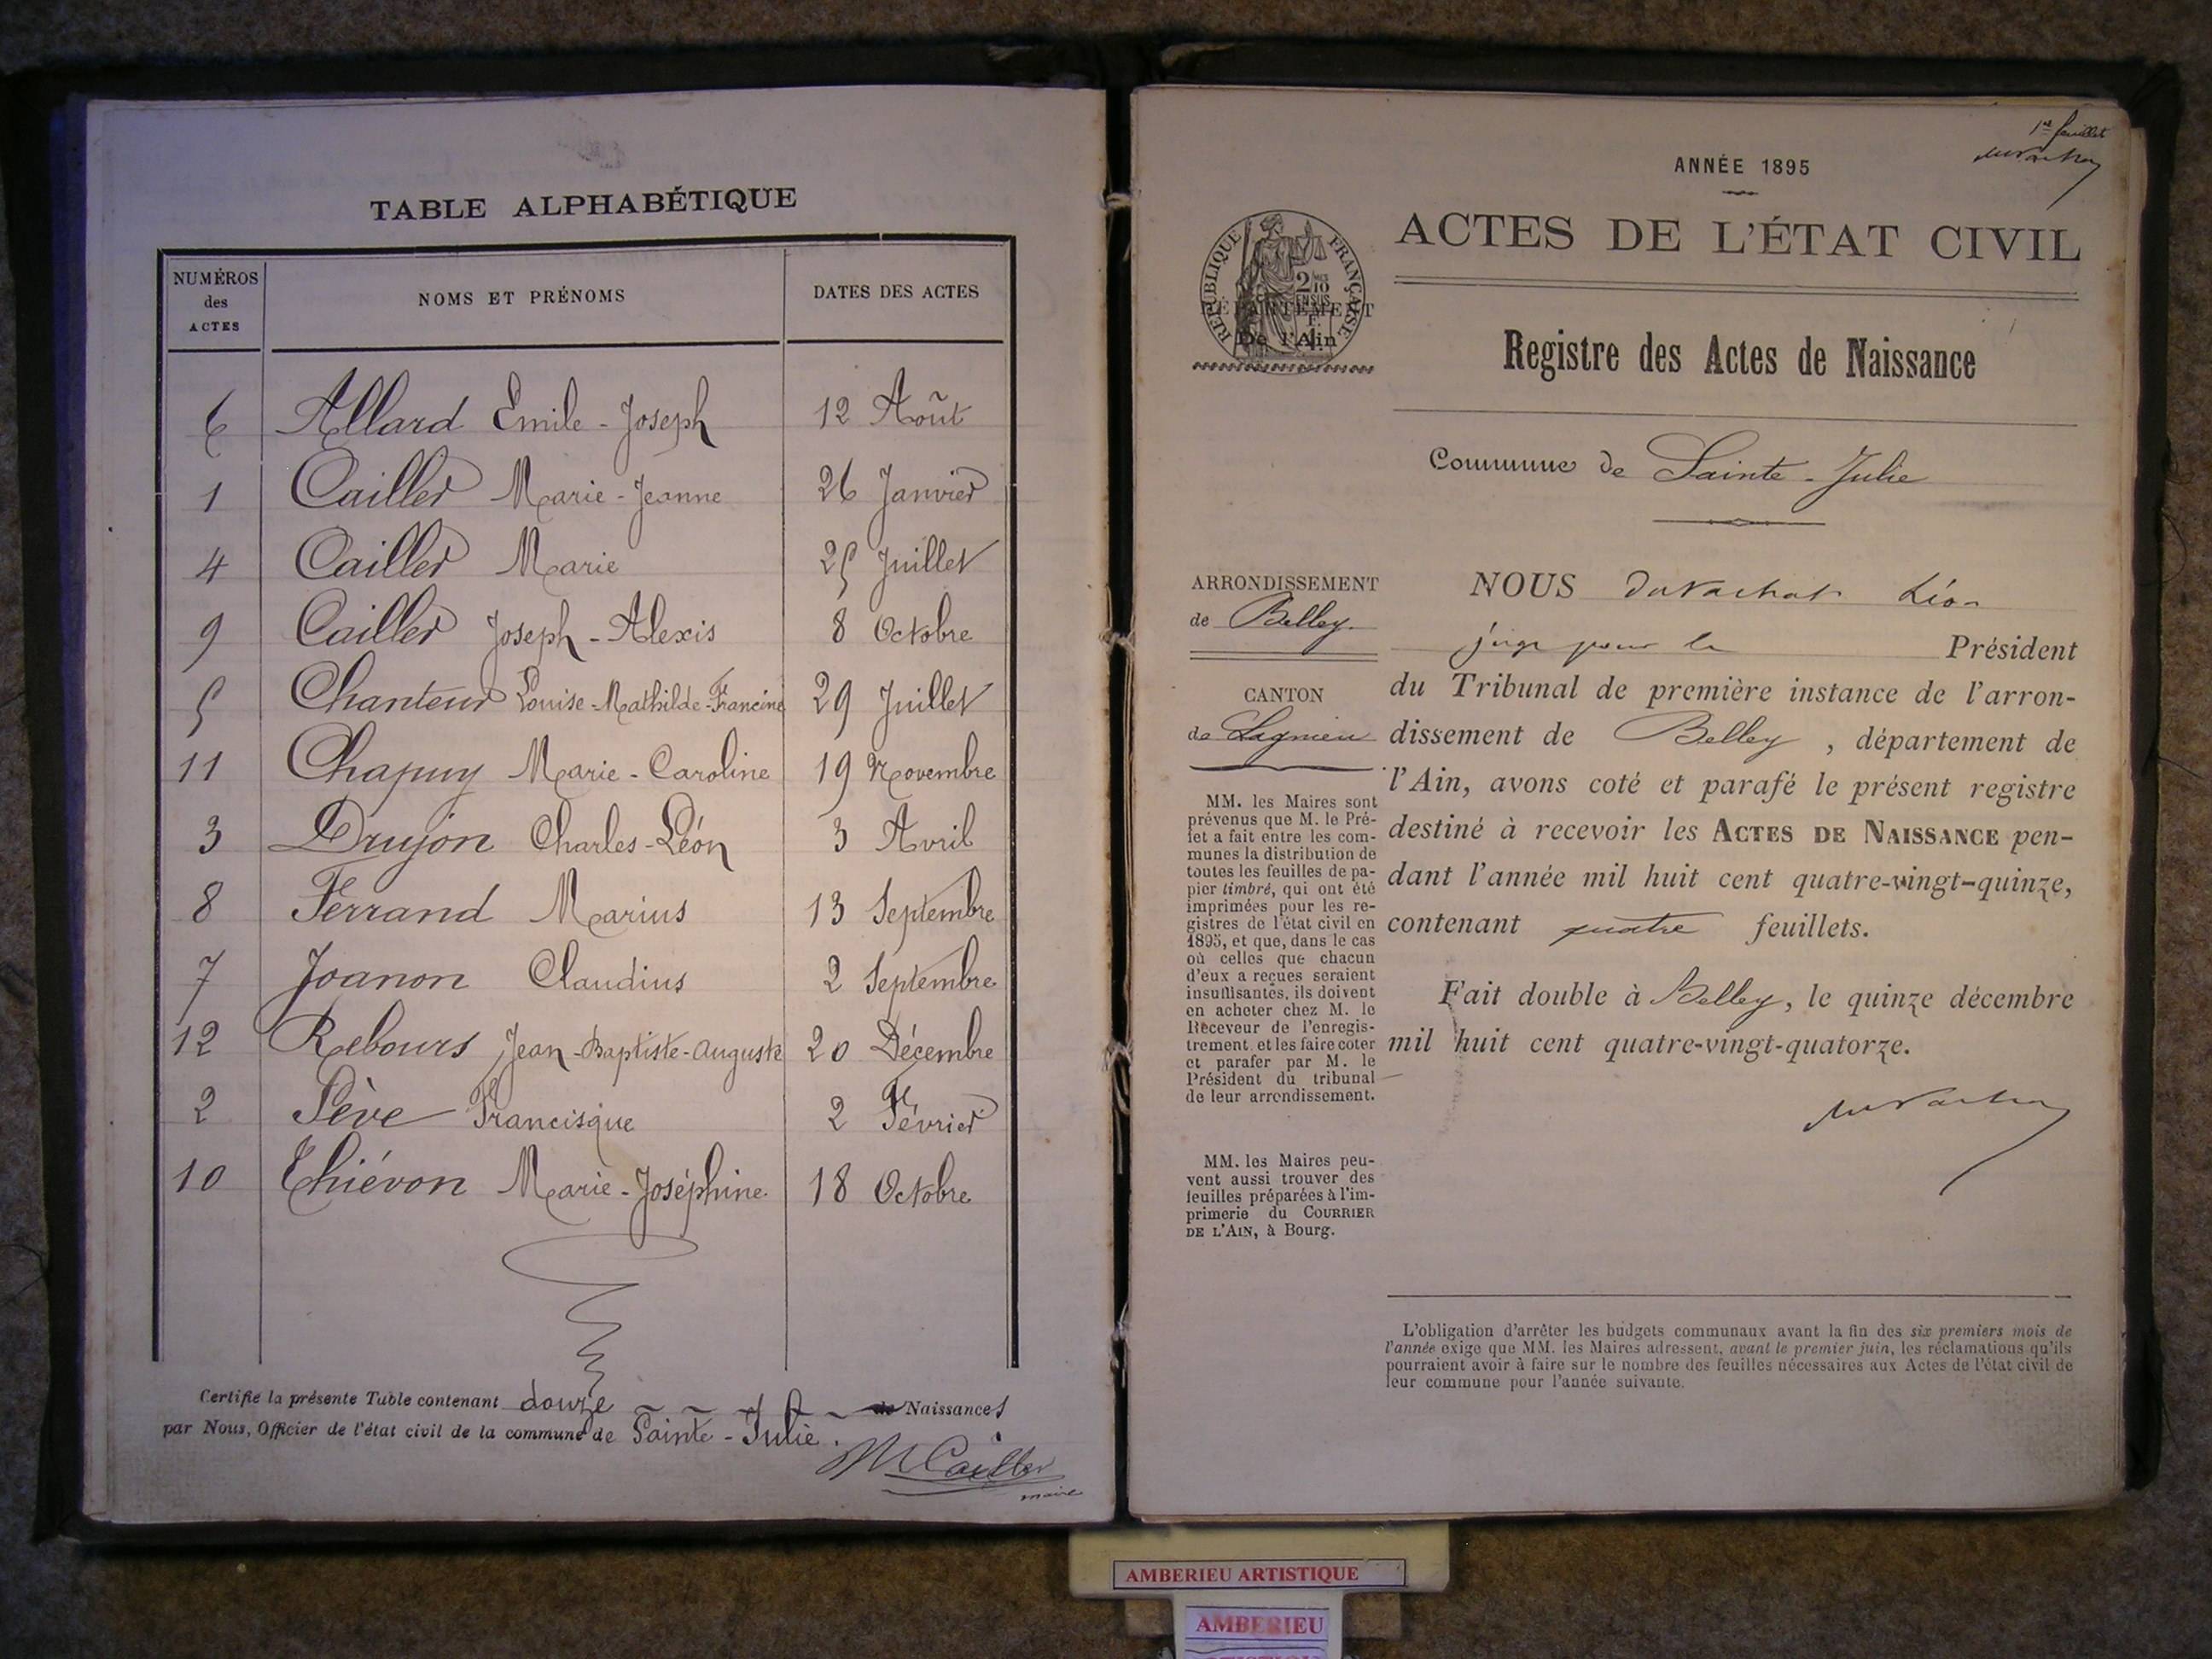 TABLE ALPHABÉTIQUE
NUMÉROS des ACTES NOMS ET PRÉNOMS DATES DES ACTES
6 Allard Emile-Joseph 12 Août
1 Cailler Marie-Jeanne 26 Janvier
4 Cailler Marie 25 Juillet
9 Cailler Joseph-Alexis 8 Octobre
5 Chanteur Louise-Mathilde-Francine 29 Juillet
11 Chapuy Marie-Caroline 19 Novembre
3 Drujon Charles-Léon 3 Avril
8 Ferrand Marius 13 Septembre
7 Joanon Claudius 2 Septembre
12 Rebours Jean-Baptiste-Auguste 20 Décembre
2 Sève Francisque 2 Février
10 Thiévon Marie-Joséphine 18 Octobre
Certifie la présente Table contenant douze Naissances
par Nous, Officier de l'état civil de la commune de Sainte-Julie.
M Cailler
maire
1er feuillet
ANNÉE 1895
ACTES DE L'ÉTAT CIVIL
RÉPUBLIQUE FRANÇAISE
2/10 EN SUS
DÉPARTEMENT
De l'Ain
Registre des Actes de Naissance
Commune de Sainte-Julie
ARRONDISSEMENT
de Belley.
CANTON
de Lagnieu
MM. les Maires sont
prévenus que M. le Pré-
fet a fait entre les com-
munes la distribution de
toutes les feuilles de pa-
pier timbré, qui ont été
imprimées pour les re-
gistres de l'état civil en
1895, et que, dans le cas
où celles que chacun
d'eux a reçues seraient
insuffisantes, ils doivent
en acheter chez M. le
Receveur de l'enregis-
trement et les faire coter
et parafer par M. le
Président du tribunal
de leur arrondissement.
MM. les Maires peu-
vent aussi trouver des
feuilles préparées à l'im-
primerie du COURRIER
DE L'AIN, à Bourg.
NOUS Duvachat Léon
juge pour le Président
du Tribunal de première instance de l'arron-
dissement de Belley, département de
l'Ain, avons coté et parafé le présent registre
destiné à recevoir les ACTES DE NAISSANCE pen-
dant l'année mil huit cent quatre-vingt-quinze,
contenant quatre feuillets.
Fait double à Belley, le quinze décembre
mil huit cent quatre-vingt-quatorze.
L'obligation d'arrêter les budgets communaux avant la fin des six premiers mois de
l'année exige que MM. les Maires adressent, avant le premier juin, les réclamations qu'ils
pourraient avoir à faire sur le nombre des feuilles nécessaires aux Actes de l'état civil de
leur commune pour l'année suivante.
AMBERIEU ARTISTIQUE
AMBERIEU